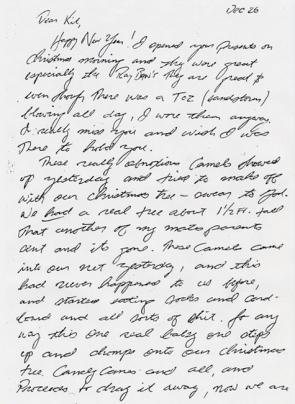 Dec 26
Dear Kid,
Happy New Year! I opened your presents on
Christmas morning and they were great
especially the Ray Ban's they are great &
even though there was a Toz (sandstorm)
blowing all day, I wore them anyway.
I really miss you and wish I was
there to hold you.
These really obnoxious Camels showed
up yesterday and tried to make off
with our Christmas tree - swear to God.
We had a real tree about 1½ Ft. tall
that another of my mates parents
sent and its gone. These Camels came
into our net yesterday, and this
had never happened to us before,
and started eating socks and card-
board and all sorts of shit. So any
way this one real ballsy one steps
up and chomps onto our Christmas
tree. Candy Canes and all, and
Proceeds to drag it away, now we are